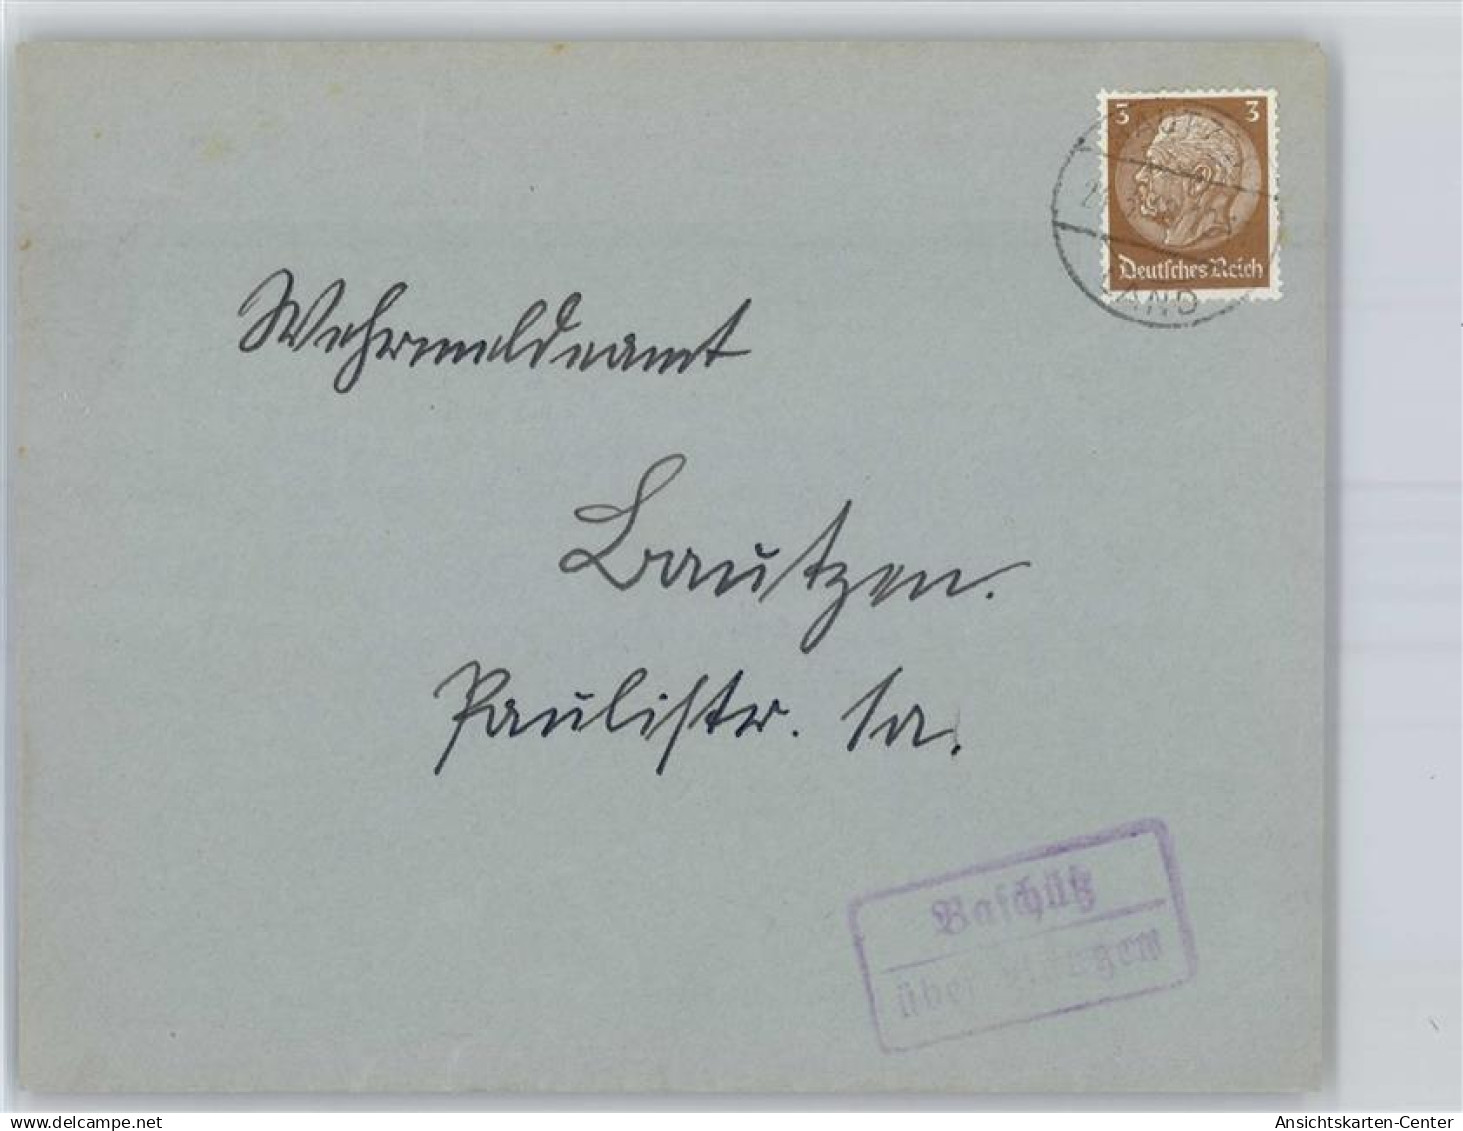 3 3
Deutsches Reich
LAND
Wehrmeldeamt
Bautzen.
Paulistr. 1a.
Baschütz
über
delcampe.net
Ansichtskarten-Center